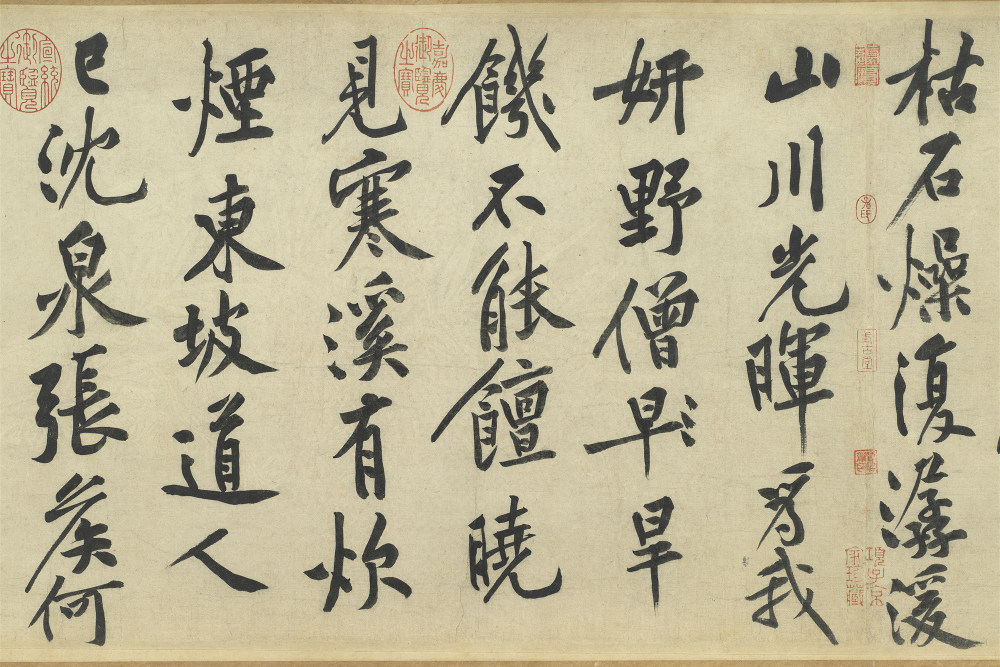 枯石燥復潺湲
山川光暉為我
妍野僧早旱
饑不能饘曉
見寒溪有炊
煙東坡道人
已沈泉張侯何
項子京家珍藏
嘉慶御覽之寶
宣統御覽之寶